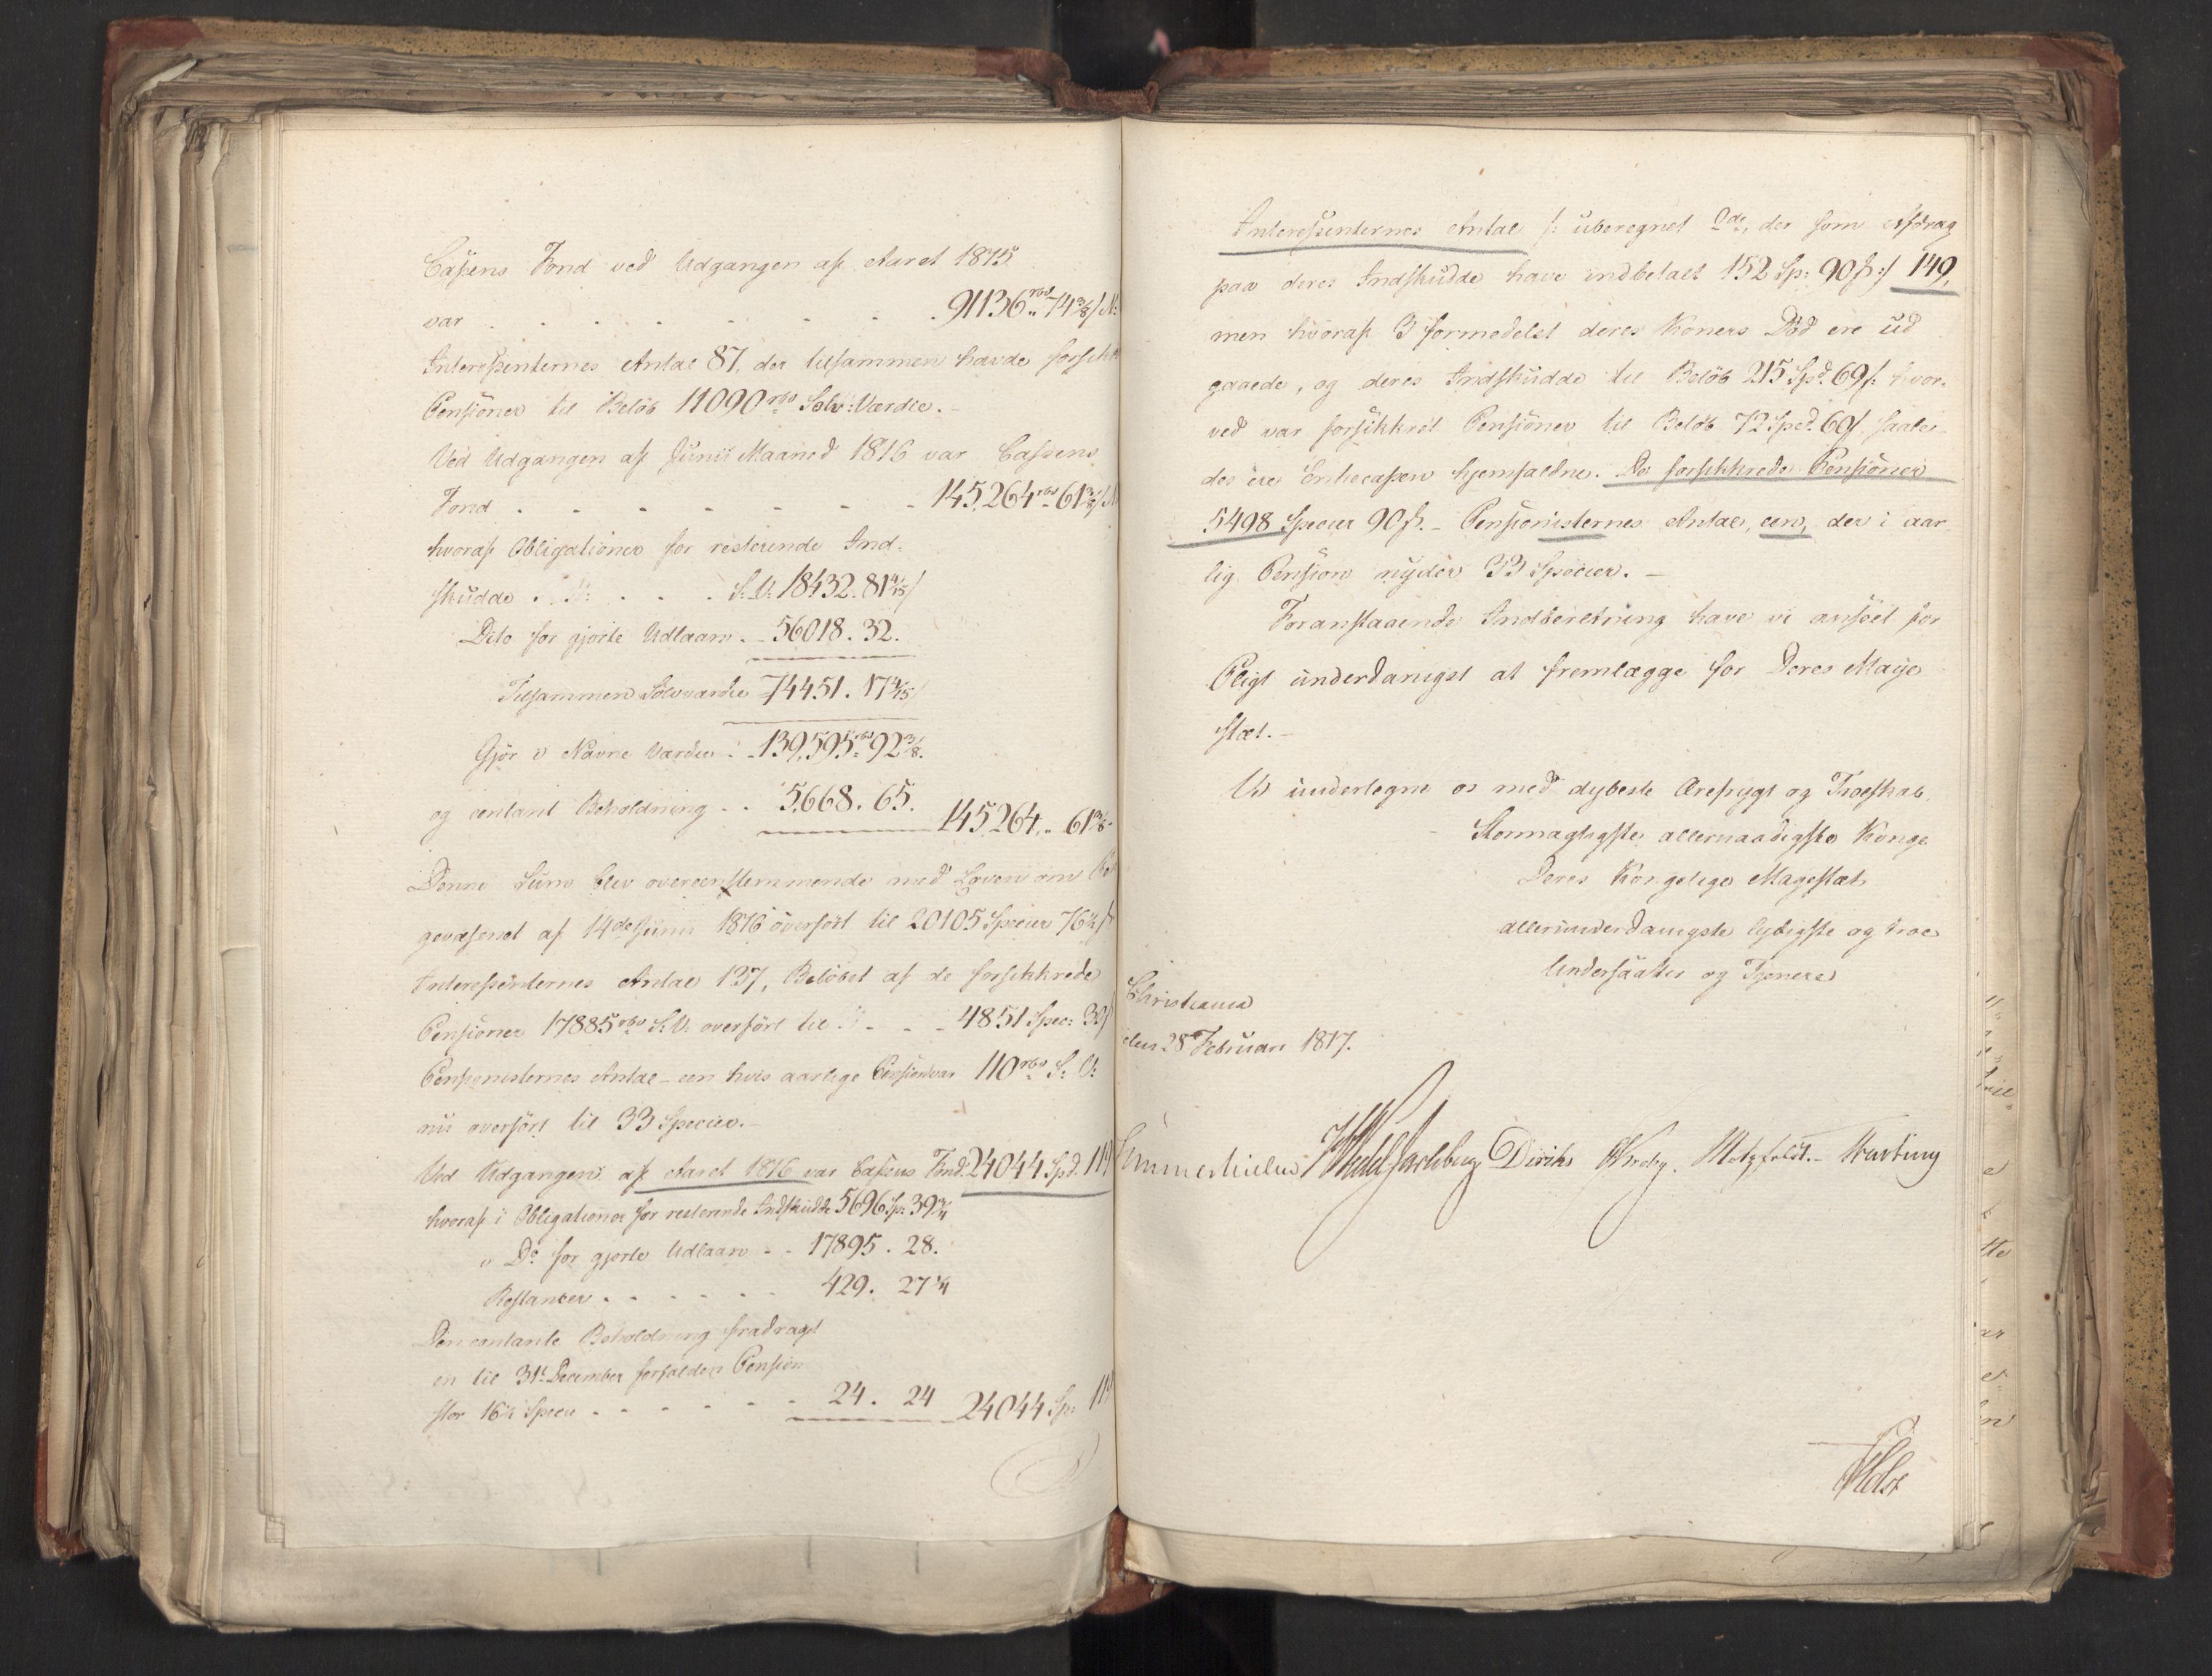 Cassens Fond ved Udgangen af Aaret 1815
var . . . . . . . . 91136 rbd 74 3/8 s N:
Interessenternes Antal 87, der tilsammen havde forsikk
Pensioner til Beløb 11090 rbd Sølv:Værdie.
Ved Udgangen af Junii Maaned 1816 var Cassens
Fond . . . . . . . 145,264 rbd 61 3/8 s N
hvoraf Obligationer for resterende Ind-
skudde . . . . S.V. 18432. 81 4/15 s
Dito for gjorte Udlaan . - 56018. 32.
Tilsammen Sølvværdie 74451. 17 4/15 s
Gjør i Navne Værdie : 139,595 rbd 92 3/8.
og contant Beholdning . . 5,668. 65. 145,264 „ 61 3/8
Denne Sum blev overeenstemmende med Loven om
gevæsenet af 14de Junii 1816 overført til 20105 Specier 76 1/2 s
Interessenternes Antal 137, Beløbet af de forsikkrede
Pensioner 17885 rbd S.V. overført til - . - 4851 Spec: 30 s
Pensionisternes Antal - een hvis aarlige Pension var 110 rbd S: V:
nu overført til 33 Specier. -
Ved Udgangen af Aaret 1816 var Cassens Fond: 24044 Spd. 119
hvoraf i Obligationer for resterende Indskudde 5696 Sp: 39 3/4
" Do for gjorte Udlaan - . 17895. 28.
Restancer . . . . . . 429. 27 1/4
Den contante Beholdning fradraget
en til 31t December forfalden Pension
stor 16 1/2 Specier . . . . . . 24. 24 24044 Sp: 119
Interessenternes Antal /: uberegnet 2de, der som Afdrag
paa deres Indskudde have indbetalt 152 Sp: 90 s:/ 149,
men hvoraf 3 formedelst deres Koners Død ere ud
gaaede, og deres Indskudde til Beløb 215 Spd. 69 s. hvor-
ved var forsikkret Pensioner til Beløb 72 Spd. 60 s. saale-
des ere Enkecassen hjemfaldne. De forsikkrede Pensioner
5498 Specier 90 s. - Pensionisternes Antal, een, der i aar-
lig Pension nyder 33 Specier. -
Foranstaaende Indberetning have vi anseet for
Pligt underdanigst at fremlægge for Deres Maje
stæt. -
Vi undertegne os med dybeste Ærefrygt og Troeskab
Stormægtigste allernaadigste Konge
Deres Kongelige Majestæt
allerunderdanigste lydigste og troe
Undersaatter og Tjenere
Christiania
den 28 Februar 1817.
Sommerhielm Wedel Jarlsberg Diriks Krohg. Motzfeldt. - Hartung
Holst